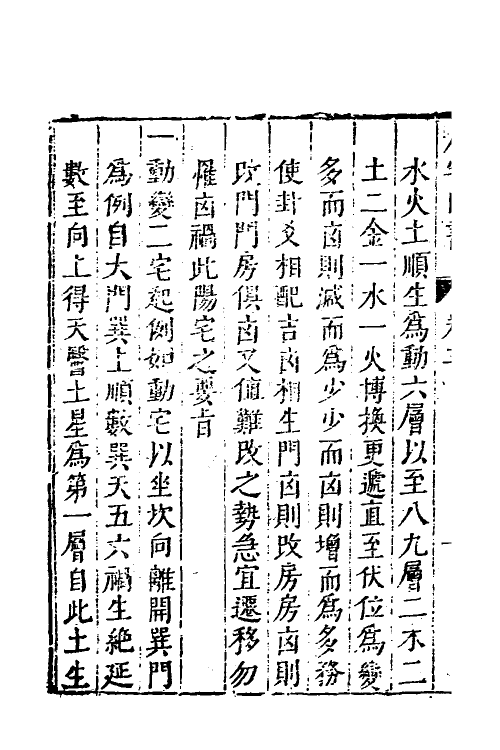 水火土順生爲動六層以至八九層二木二
土二金一水一火博換更遞直至伏位爲變
多而凶則減而爲少少而凶則增而爲多務
使卦爻相配吉凶相生門凶則改房房凶則
改門門房俱凶又値難改之勢急宜遷移勿
罹凶禍此陽宅之要旨
一動變二宅起例如動宅以坐坎向離開巽門
爲例自大門巽上順數巽天五六禍生絶延
數至向上得天醫土星爲第一層自此土生